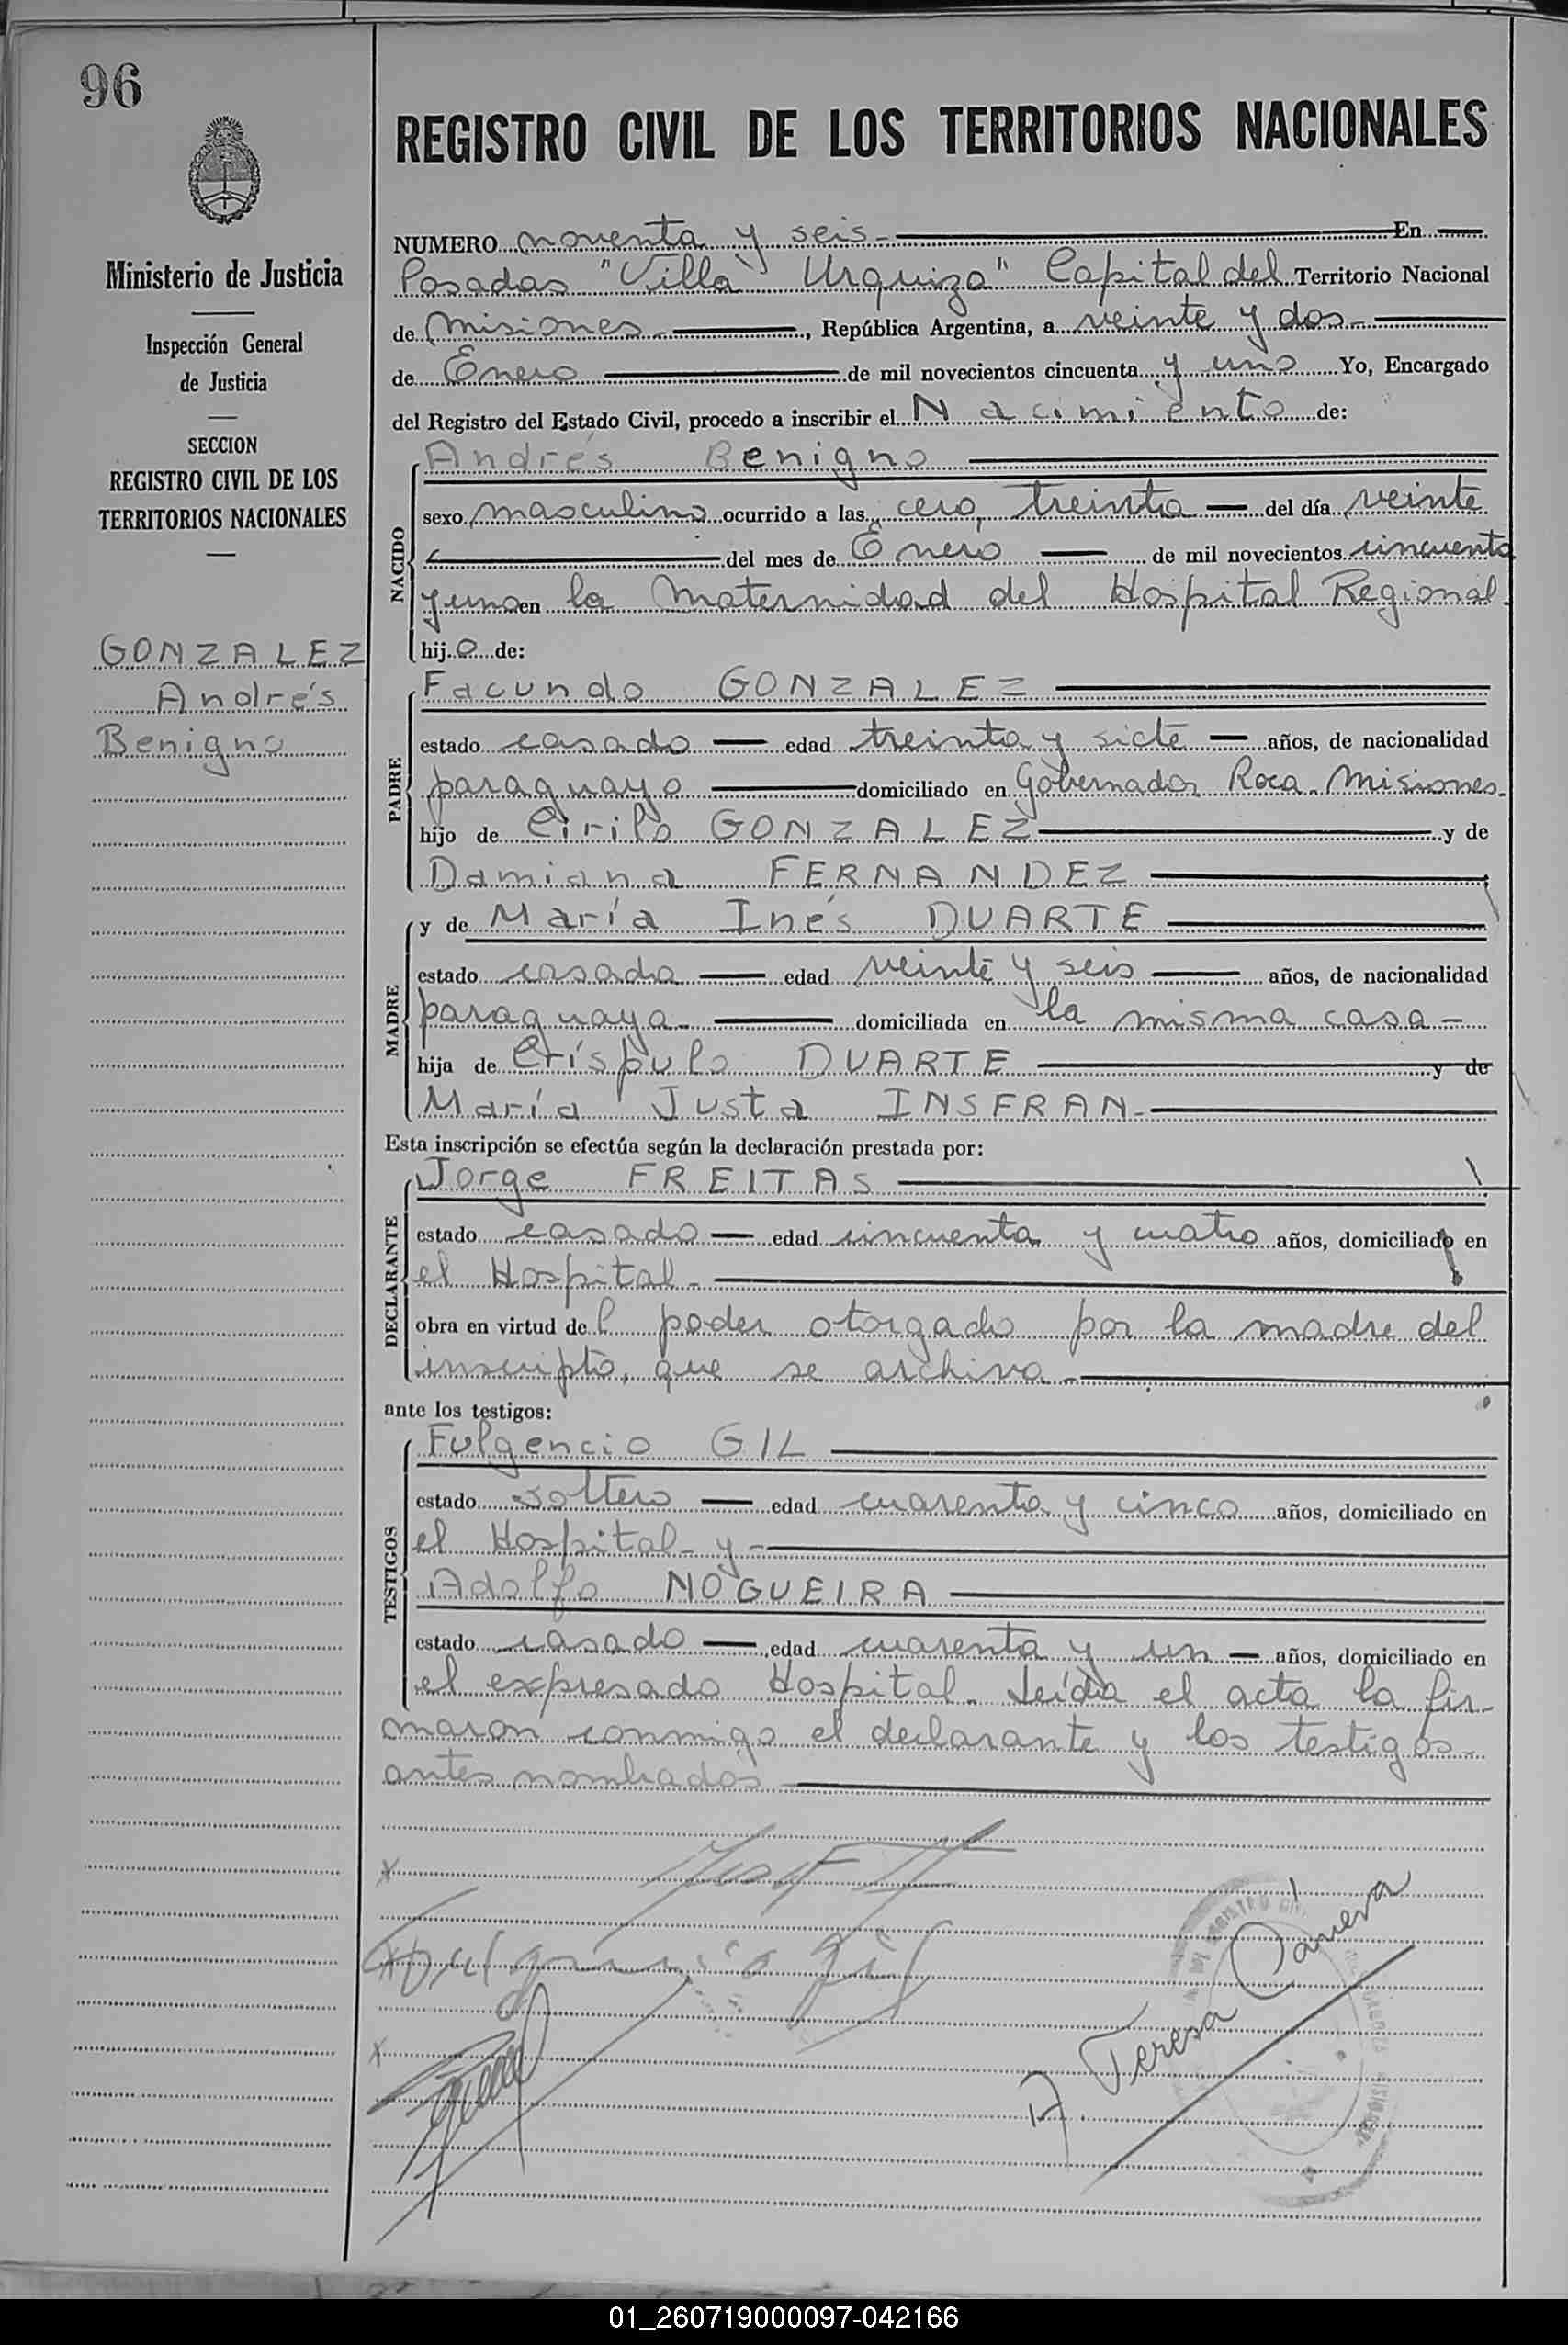 96
Ministerio de Justicia
Inspección General
de Justicia
SECCION
REGISTRO CIVIL DE LOS
TERRITORIOS NACIONALES
GONZALEZ
Andrés
Benigno
REGISTRO CIVIL DE LOS TERRITORIOS NACIONALES
NUMERO noventa y seis- En
Posadas "Villa Urquiza" Capital del Territorio Nacional
de Misiones-, República Argentina, a veinte y dos-
de Enero de mil novecientos cincuenta y uno Yo, Encargado
del Registro del Estado Civil, procedo a inscribir el Nacimiento de:
NACIDO
Andrés Benigno
sexo masculino ocurrido a las cero, treinta — del día veinte
del mes de Enero — de mil novecientos cincuenta
y uno en la Maternidad del Hospital Regional.
hijo de:
PADRE
Facundo GONZALEZ
estado casado — edad treinta y siete — años, de nacionalidad
paraguayo domiciliado en Gobernador Roca. Misiones.
hijo de Cirilo GONZALEZ y de
Damiana FERNANDEZ
MADRE
y de María Inés DUARTE
estado casada — edad veinte y seis — años, de nacionalidad
paraguaya- domiciliada en la misma casa-
hija de Críspulo DUARTE y de
María Justa INSFRAN-
Esta inscripción se efectúa según la declaración prestada por:
DECLARANTE
Jorge FREITAS
estado casado — edad cincuenta y cuatro años, domiciliado en
el Hospital-
obra en virtud del poder otorgado por la madre del
inscripto, que se archiva-
ante los testigos:
TESTIGOS
Fulgencio GIL
estado soltero — edad cuarenta y cinco años, domiciliado en
el Hospital- y-
Adolfo NOGUEIRA
estado casado — edad cuarenta y un — años, domiciliado en
el expresado Hospital. Leída el acta la fir-
maron conmigo el declarante y los testigos-
antes nombrados
Fulgencio Gil
A. Teresa Cáneva
01_260719000097-042166